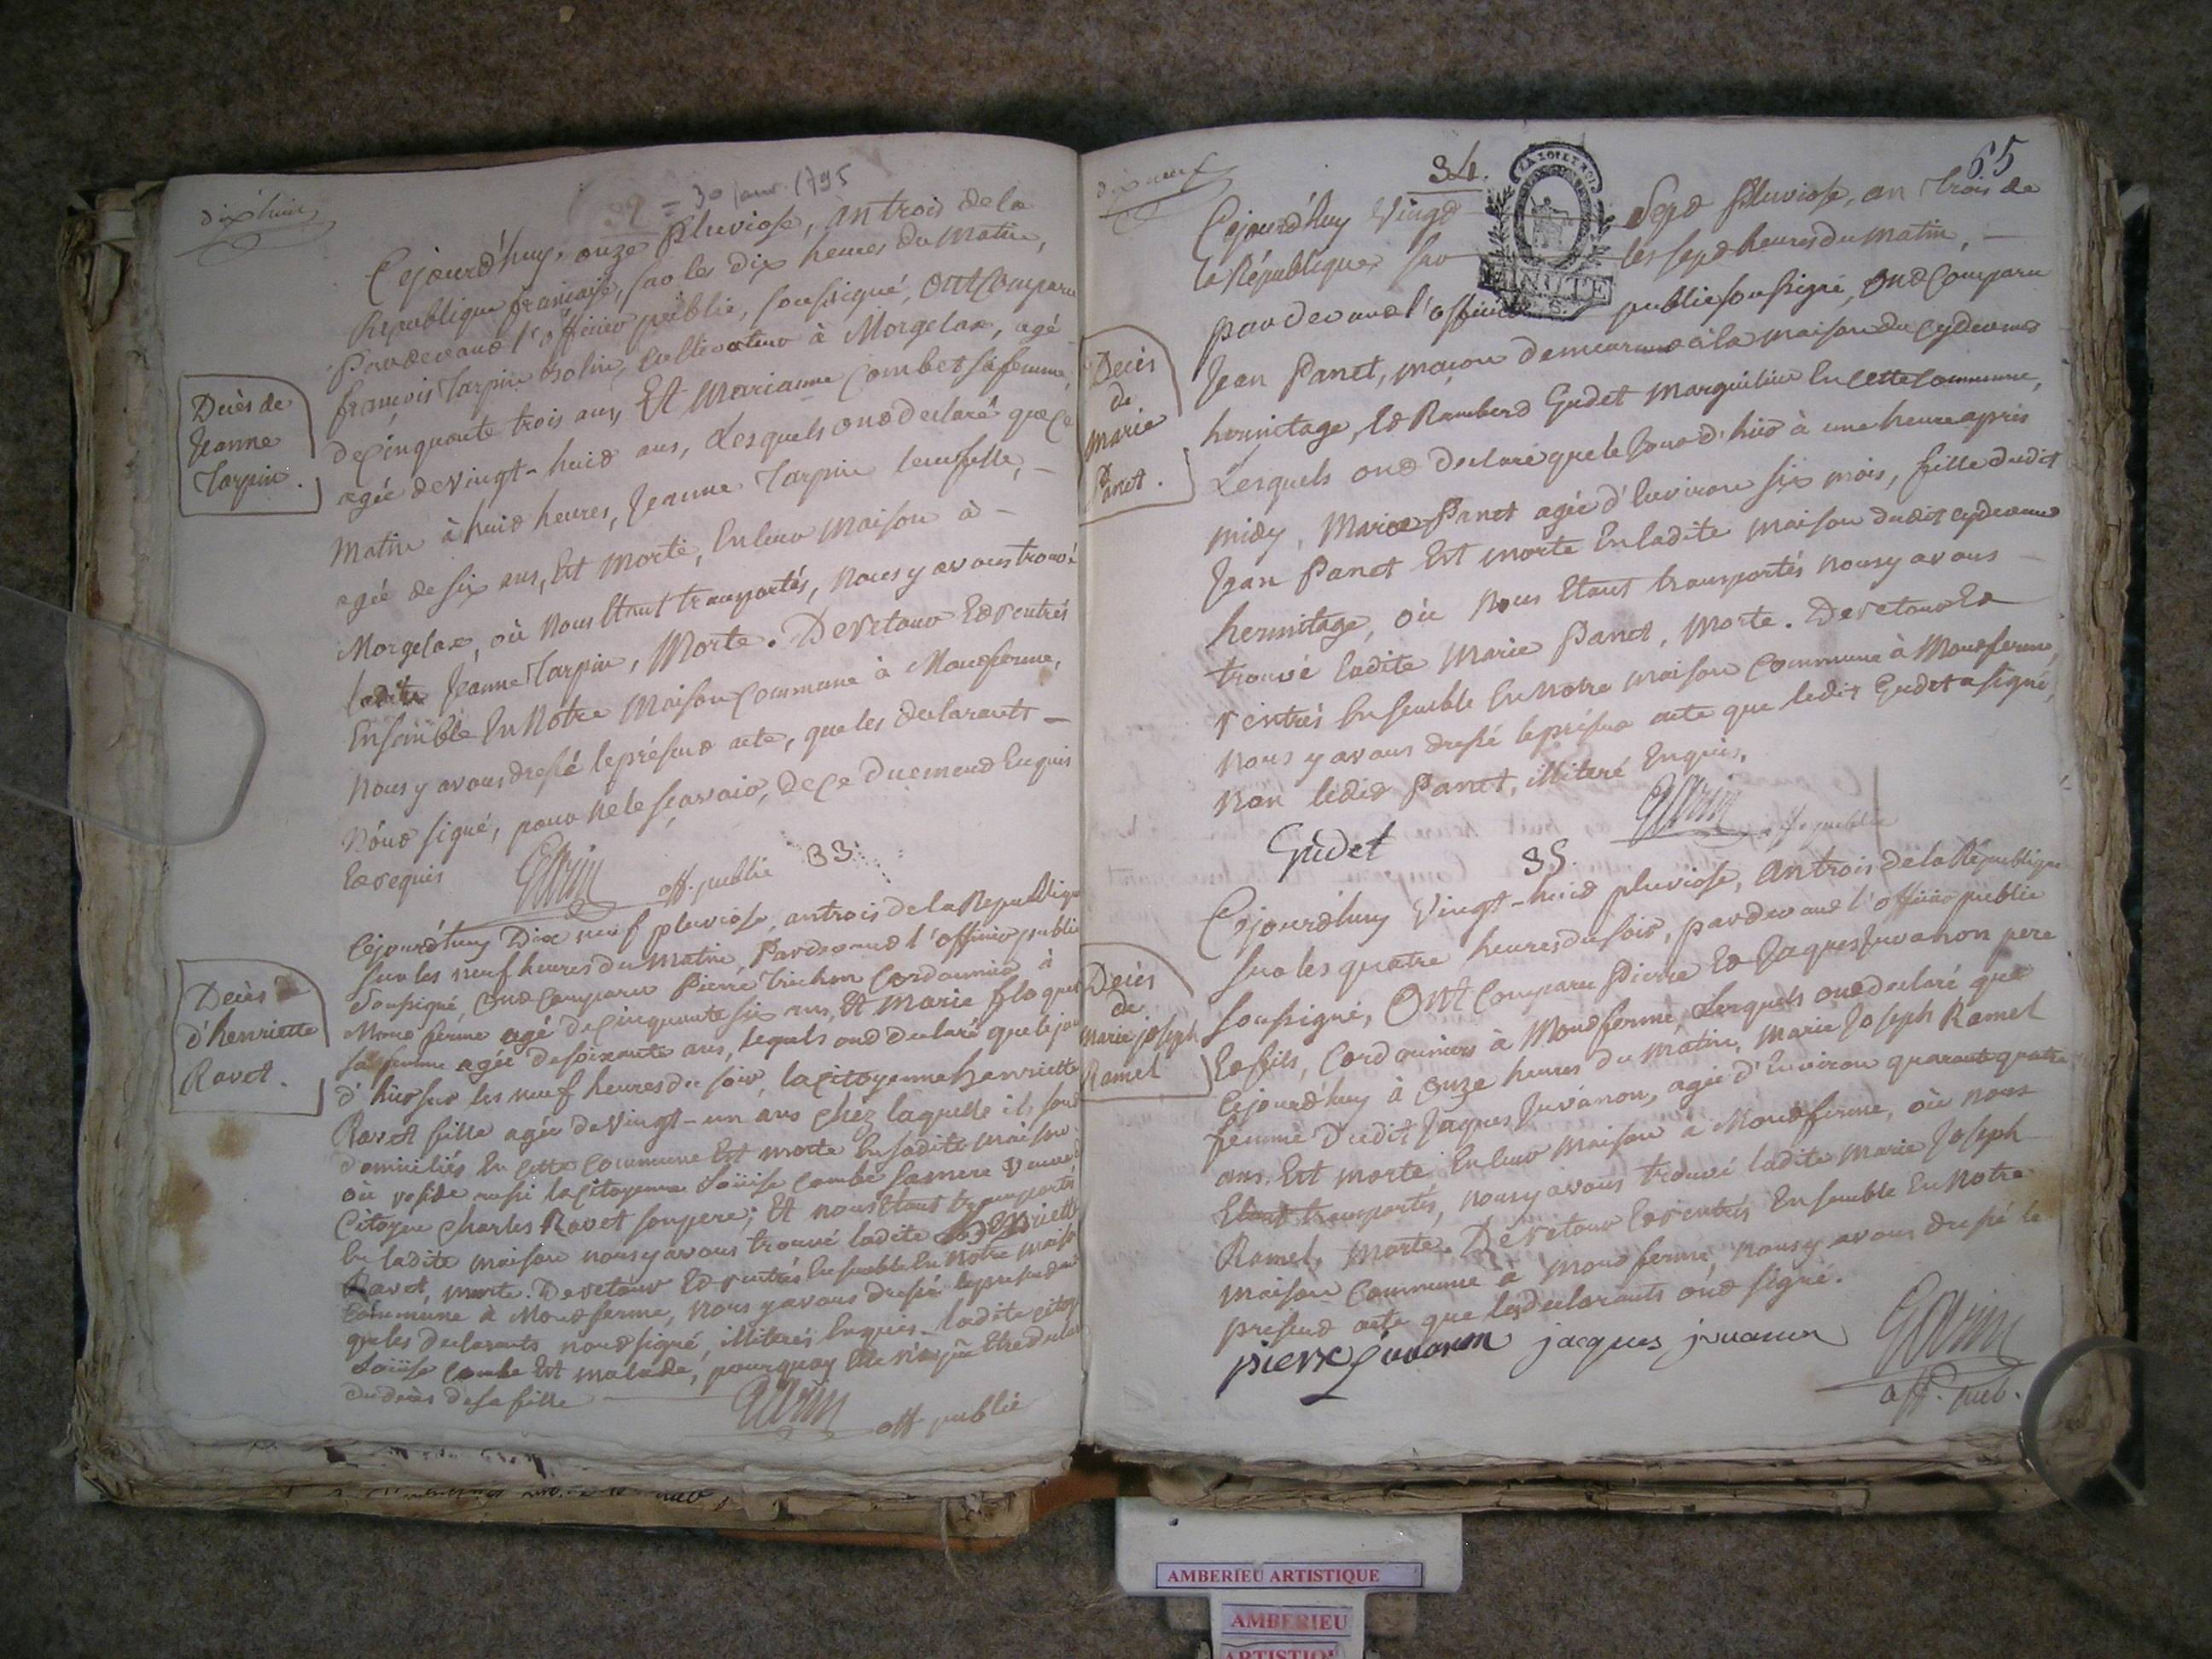 dix huit
32 = 30 janv. 1795
Cejourd'huy, onze Pluviose, an trois de la
République française, sur les dix heures du Matin,
Pardevant l'officier public, soussigné, ont comparu
françois Tarpin Colin, cultivateur à Morgelax, agé
de Cinquante trois ans, Et Marianne Combet sa femme,
agée de vingt-huit ans, Lesquels ont declaré que ce
Matin à huit heures, Jeanne Tarpin leur fille,
agée de six ans, Est Morte, En leur Maison à
Morgelax, où Nous Etant transportés, Nous y avons trouvé
ladite Jeanne Tarpin, Morte. De retour Et rentrés
Ensemble En Nôtre Maison Commune à Montferme,
Nous y avons dressé le présent acte, que les declarants
N'ont signé, pour ne le sçavoir, de ce Duement Enquis
Et requis
off. public
Decès de
Jeanne
Tarpin.
33
Cejourd'huy Dix neuf pluviose, an trois de la Republique
sur les neuf heures du matin, Pardevant l'officier public
Soussigné, ont comparu Pierre Trichon Cordonnier à
Mont ferme agé de Cinquante six ans, Et Marie floquet
sa femme agée de soixante ans, lequels ont declaré que le jour
d'hier sur les neuf heures du soir, la Citoyenne henriette
Ravet fille agée de Vingt-un ans chez laquelle ils sont
domiciliés En cette Commune Est morte En sadite maison
où reside aussi la Citoyenne Loüise Combe sa mere Veuve du
Citoyen Charles Ravet son pere; Et nous Etant transportés
En ladite maison nous y avons trouvé ladite Henriette
Ravet, morte. De retour Et rentrés Ensemble En Notre maison
Commune à Montferme, nous y avons dressé le present acte
que les declarants n'ont signé, illiterés Enquis. ladite Citoy.
Loüise Combe Est malade, pourquoy Elle n'a pû Etre declar
du decès de sa fille
off. public
Decès
d'henriette
Ravet.
dix neuf
34.
65
Cejourd'huy Vingt Sept Pluviose, an trois de
la République, sur les sept heures du matin,
pardevant l'officier public soussigné, ont Comparu
Jean Panet, maçon demeurant à la maison du cydevant
hermitage, Et Rambert Gudet Marguilier En cette Commune,
Lesquels ont declaré que le Jour d'hier à une heure après
midy, Marie Panet agée d'Environ six mois, fille dudit
Jean Panet Est morte En ladite maison dudit cydevant
hermitage, où Nous Etant transportés nous y avons
trouvé ladite Marie Panet, Morte. De retour Et
rentrés Ensemble En Notre maison Commune à Montferme,
Nous y avons dressé le présent acte que ledit Gudet a signé,
Non ledit Panet, illiteré Enquis.
Gudet
off. public
Decès
de
Marie
Panet.
35.
Cejourd'huy Vingt-huit pluviose, an trois de la République
sur les quatre heures du soir, pardevant l'officier public
soussigné, Ont Comparu Pierre Et Jaques Juvanon pere
Et fils, Cordonniers à Montferme, Lesquels ont declaré que
Cejourd'huy à Onze heures du matin, Marie Joseph Ramel
femme dudit Jaques Juvanon, agée d'Environ quarante quatre
ans Est morte En leur maison à Montferme, où nous
Etant transportés, nous y avons trouvé ladite Marie Joseph
Ramel, Morte. De retour Et rentrés Ensemble En Notre
maison Commune à Mont ferme, nous y avons dressé le
présent acte que les declarants ont signé.
pierre juvanon jacques juvanon
off. pub.
Decès
de
Marie joseph
Ramel
AMBERIEU ARTISTIQUE
AMBERIEU
ARTISTIQU